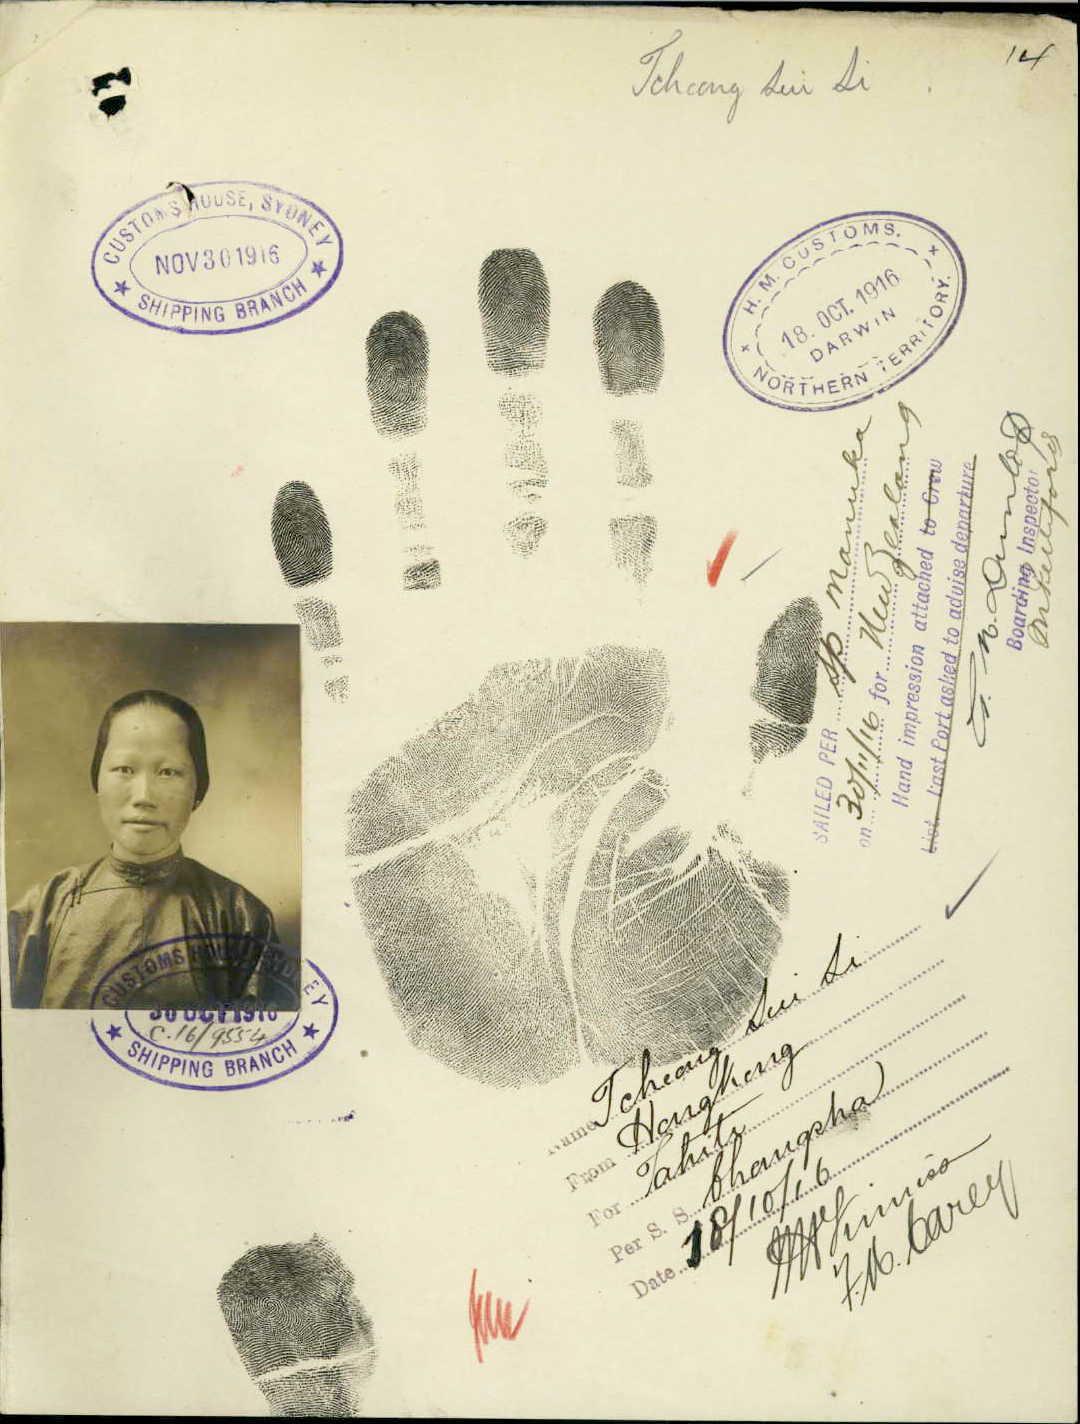 14
Tcheong Sui Si
CUSTOMS HOUSE, SYDNEY
NOV 30 1916
SHIPPING BRANCH
H. M. CUSTOMS.
18. OCT. 1916
DARWIN
NORTHERN TERRITORY.
SAILED PER SS Manuka
on 30/11/16 for New Zealand
Hand impression attached to Crew
List. Last Port asked to advise departure
Boarding Inspector
CUSTOMS HOUSE, SYDNEY
30 OCT 1916
C. 16/9554
SHIPPING BRANCH
Name Tcheong Sui Si
From Hongkong
For Tahiti
Per S. S. Changsha
Date 18/10/16